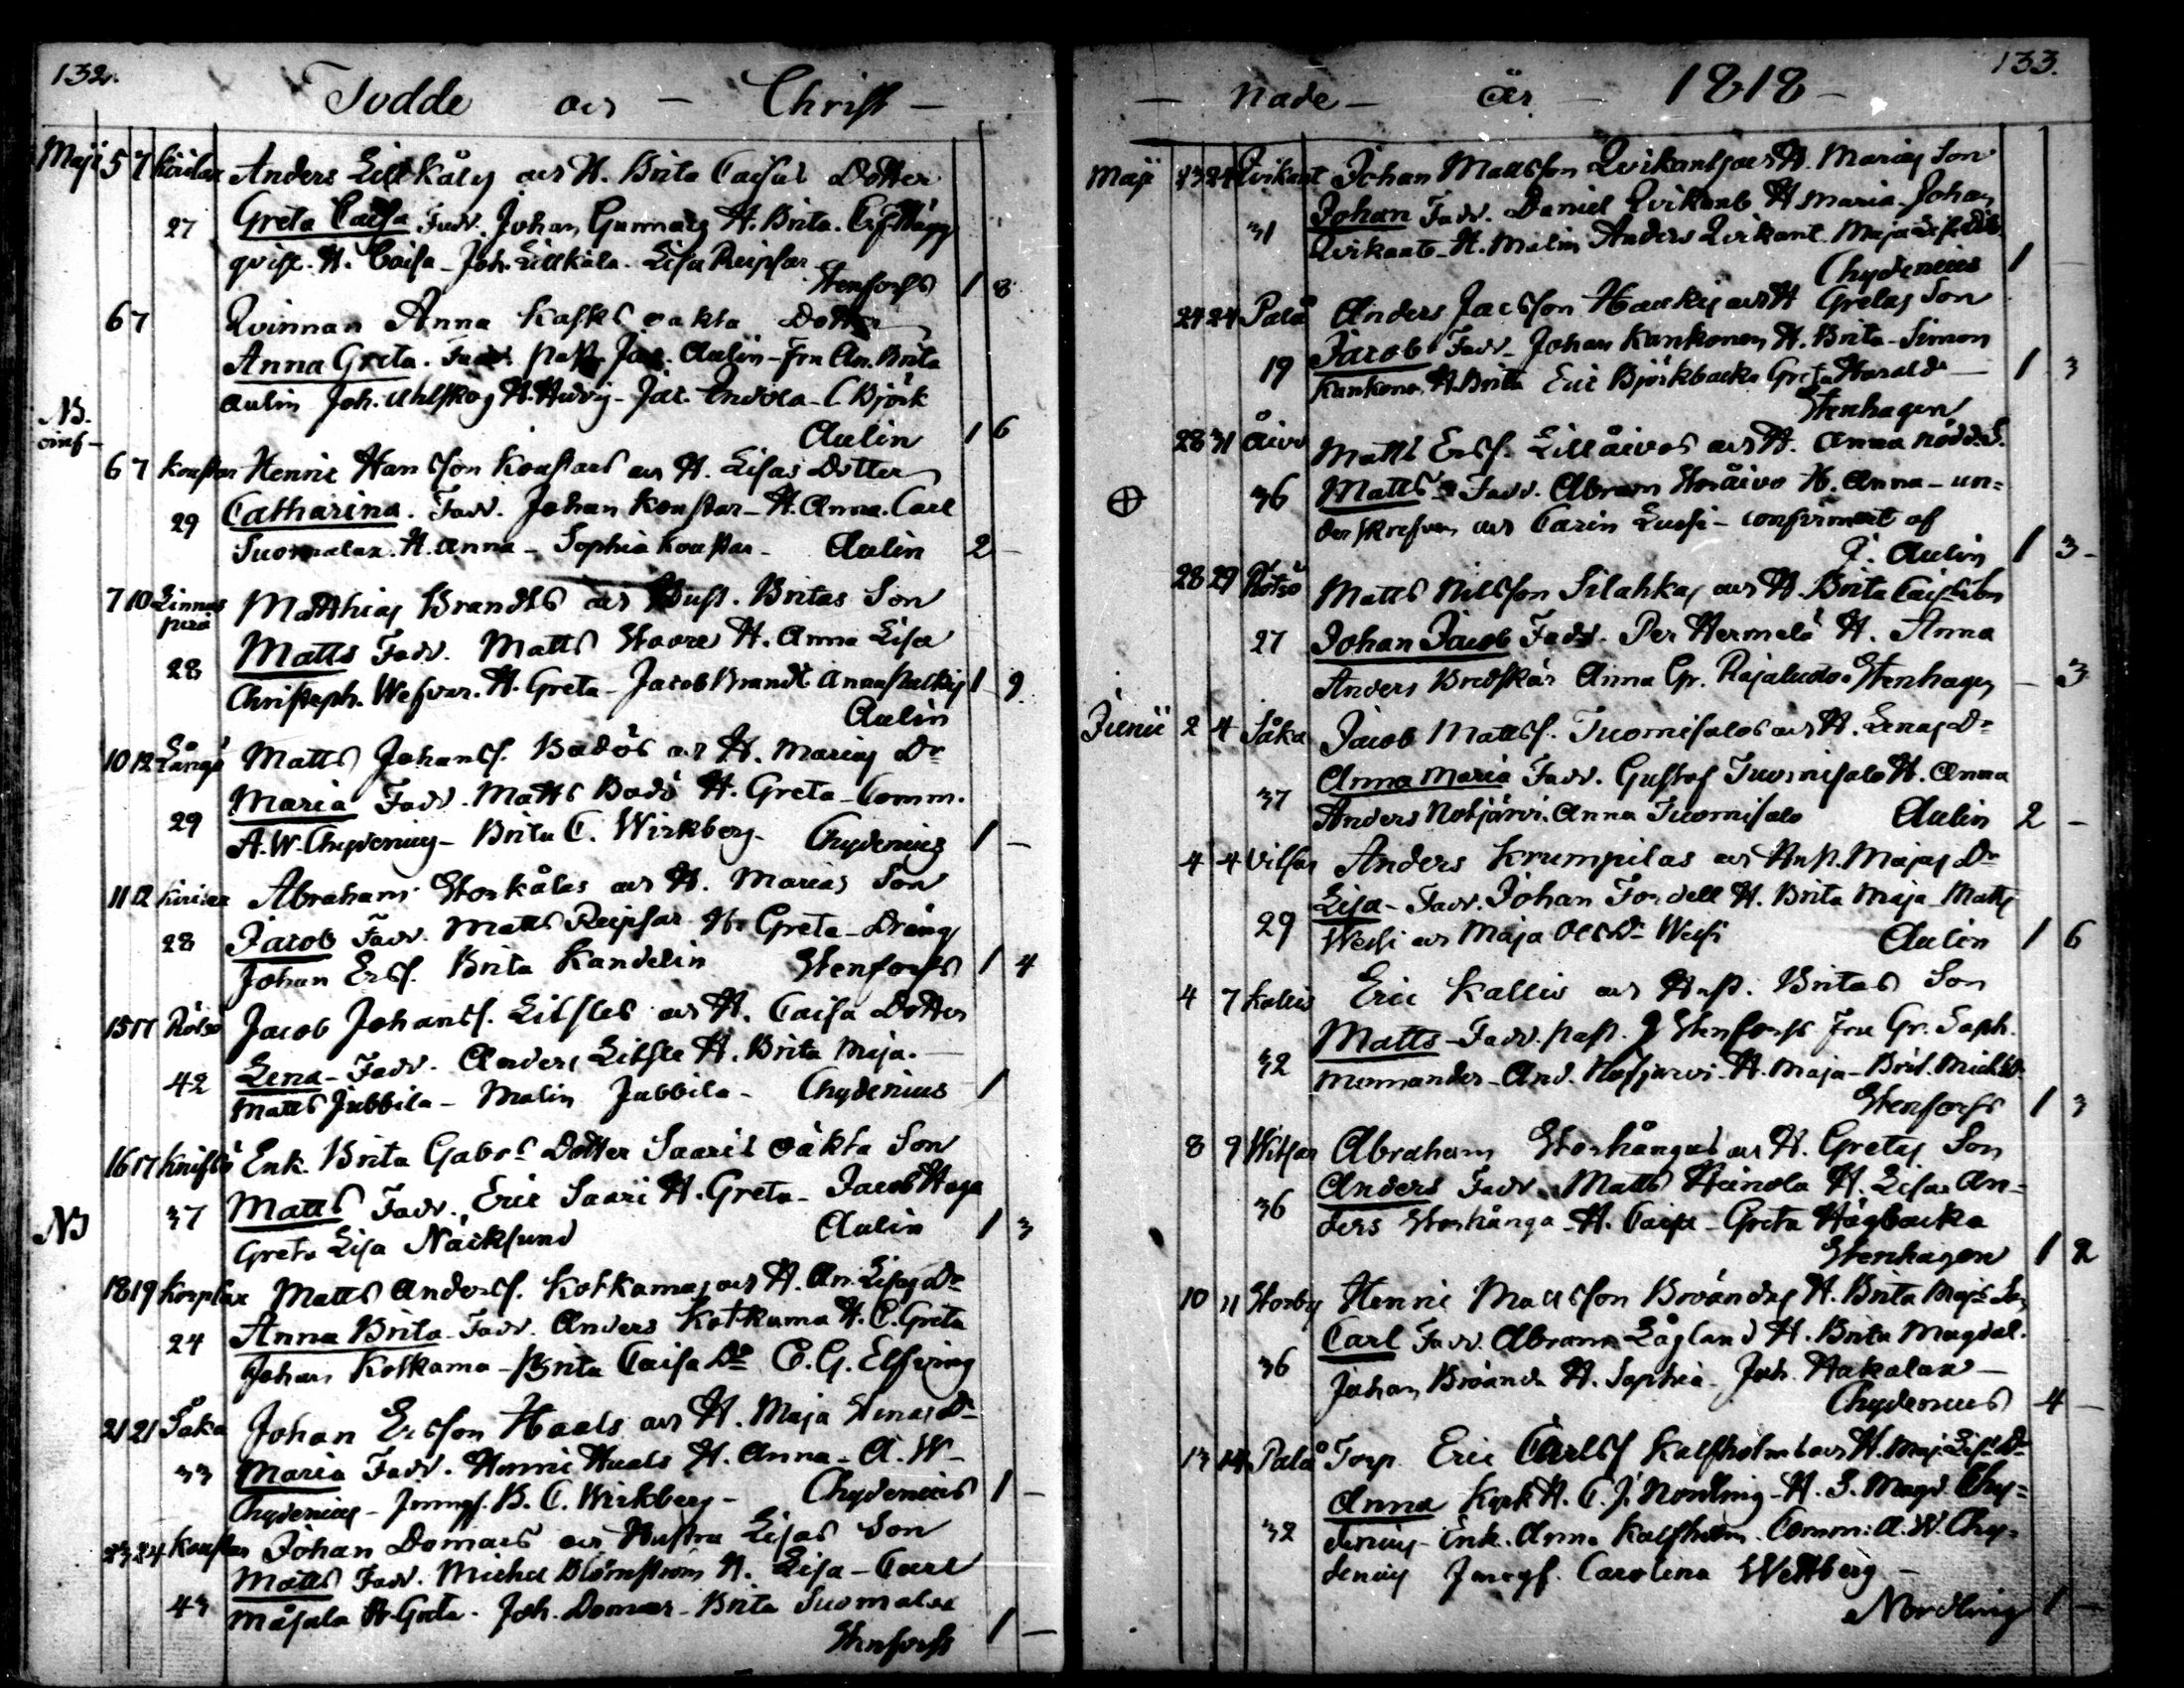 132.
Födde och Christ
Maji 5 7 Kirilax Anders Lillkåla och H. Brita Caisas Dotter
27 Greta Caisa Fadd. Johan Gunnars H. Brita. Hägg
qvist. H. Caisa - Joh. Lillkåla. Lisa Reipsar
Stenfors 1 8
6 7 Qvinnan Anna Kaskes oäkta Dotter
Anna Greta. Fadd. Past. Jac. Aulin - Fru An. Brita
Aulin Joh. Uhlskog H. Hedvig - Jac. Indola - C. Björk
NB. Aulin 1 6
6 7 Konstar Henric Hansson Konstars och H. Lisas Dotter
29 Catharina. Fadd. Johan Konstar - H. Anna. Carl
Suomalax. H. Anna - Sophia Konstar - Aulin 2 -
7 10 Linnas
perä Matthias Brandts och Hust. Britas Son
28 Matts Fadd. Matts Staare H. Anna Lisa
Christoph. H. Greta - Jacob Brandt 1 9
Aulin
10 12 Långö Matts Johanss. Badös och H. Marias Dr
29 Maria Fadd. Matts Badö H. Greta - Comm.
A. W. Chydenius - Brita C. Wirkberg - Chydenius 1 -
11 12 Kirilax Abraham Storkålas och H. Marias Son
28 Jacob Fadd. Matts Reipsar H. Greta - Dräng
Johan Erss. Brita Kandelin Stenfors 1 4
15 17 Rötsö Jacob Johanss. Lilsles och H. Caisa Dotter
42 Lena - Fadd. Anders Lilsle H. Brita Maja. -
Matts Jubbila - Malin Jubbila - Chydenius 1
16 17 Knifslö Enk. Brita Gabrs Dotter Saaris oäkta Son
37 Matts Fadd. Eric Saari H. Greta - Jacob Haga
NB Greta Lisa Näcksund Aulin 1 3
18 19 Korplax Matts Anderss. Kotkamas och H. An. Lisas Dr
24 Anna Brita - Fadd. Anders Kotkama H. C. Greta
Johan Kotkama - Brita Caisa Do C. G. Elfving
21 21 Såka Johan Ersson Haals och H. Maja Stinas Dr
33 Maria Fadd. Henric Haals H. Anna - A. W -
Chydenius - Jungf. B. C. Wirkberg - Chydenius 1 -
23 24 Konstar Johan Domars och Hustru Lisas Son
43 Matts Fadd. Michel Blomström H. Lisa - Carl
Måsala H. Greta. Joh. Domar - Brita Suomalax
Stenfors 1 -
133.
Nåde - År - 1818 -
Maji 23 24 Qvikant Johan Mattsson Qvikants och H. Marias Son
31 Johan Fadd. Daniel Qvikant H Maria - Johan
Qvikant - H. Malin Anders Qvikant. Maja
Chydenius 1
24 24 Palå Anders Jacsson Haukis och H Gretas Son
19 Jacob Fadd. Johan Kankonen H. Brita - Simon
Kankonen H. Brita Eric Björkbacka Greta Harald - 1 3
Stenhagen
28 31 Åivo Matts Erss. Lillåivos och H. Anna nöddS.
36 Matts Fadd. Abram Storåivo H. Anna - un=
derskrefven och Carin Lussi - confirmert af
J. Aulin 1 3 -
28 29 Rötsö Matts Nilsson Silahkas och H. Brita
27 Johan Jacob Fadd. Per Hermelö H. Anna
Anders Bredskär Anna Gr. Rajaludo. Stenhagen - 3
Junii 2 4 Såka Jacob Mattss. Tuomisalos och H. Lenas Dr
37 Anna Maria Fadd. Gustaf Tuomisalo H. Anna
Anders Notjärvi. Anna Tuomisalo Aulin 2 -
4 4 Vitsar Anders Krumpilas och Hust. Majas Dr
29 Lisa - Fadd. Johan Fordell H. Brita Maja - Matts
Wessi och Maja Dr Wessi Aulin 1 6
4 7 Kallis Eric Kallis och Hust. Britas Son
32 Matts - Fadd. Past. J Stenfors Fru Gr. Soph.
Memander - And. Notjärvi - H. Maja - Brit.
Stenfors 1 3
8 9 Witsar Abraham Storhångas och H. Gretas Son
36 Anders Fadd. Matts Heinola H. Lisa An=
ders Storhånga - H. Caisa - Greta Högbacka
Stenhagen 1 2
10 11 Storby Henric Mattsson Broända H. Brita Majs Son
36 Carl Fadd. Abram Lågland H. Brita Magdal.
Johan Broända H. Sophia - Joh. Hakalax -
Chydenius 4 -
13 14 Palå Torp. Eric Carlss Kalfholms och H. Maj. Lis. Dr
Anna KyrkH. C. J. Nordling - H. S. Magd. Chy=
32 denius - Enk. Anna Kalfholm. Comm: A. W. Chy=
denius Jungf. Carolina Wettberg -
Nordling 1 -